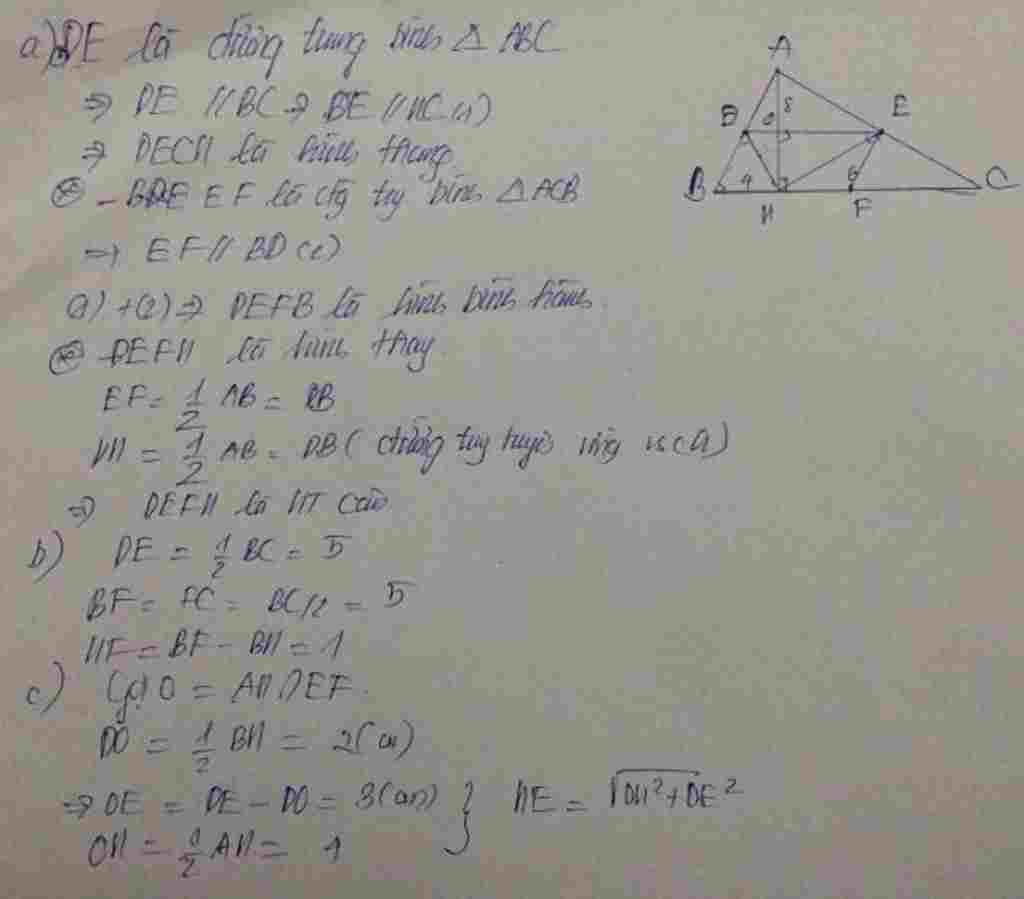 a) DE là đường trung bình △ ABC
⇒ DE // BC ⇒ DE // HC (1)
⇒ DECH là hình thang
⊛ - EF là đg tg bình △ ACB
⇒ EF // BD (2)
(1) + (2) ⇒ DEFB là hình bình hành
⊛ DEFH là hình thag
EF = 1/2 AB = DB
DH = 1/2 AB = DB ( đường tuy tuyến ứng)
⇒ DEFH là HT cân
b) DE = 1/2 BC = 5
BF = FC = BC/2 = 5
HF = BF - BH = 1
c) Gọi O = AH ∩ EF
DO = 1/2 BH = 2 (cm)
⇒ OE = DE - DO = 3 (cm) } HE = √OH² + OE²
OH = 1/2 AH = 4
A
8
D
O
E
B
4
6
C
H
F